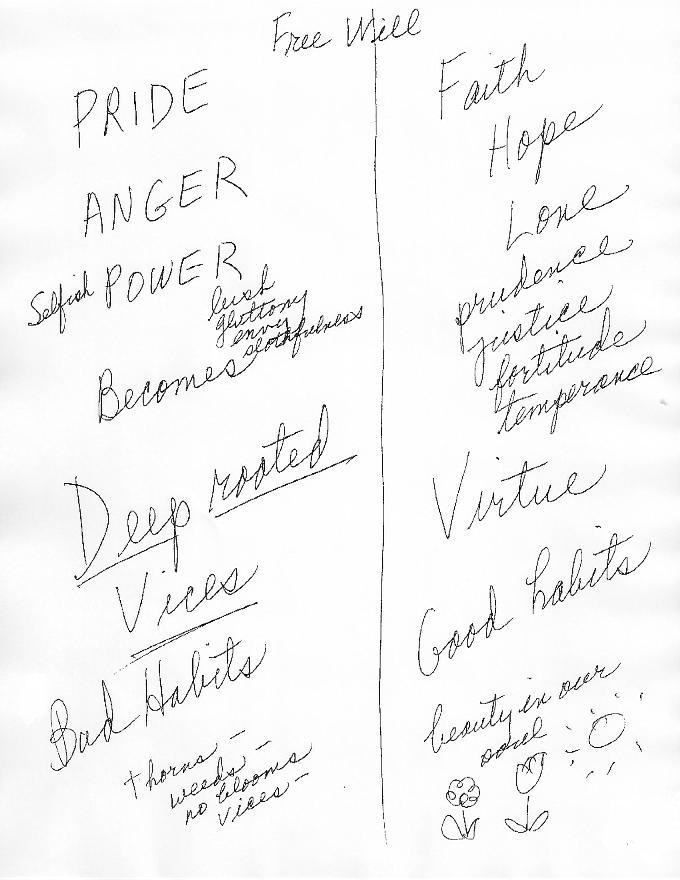 Free Will
PRIDE
ANGER
Selfish POWER
lust
gluttony
envy
slothfulness
Becomes
Deep rooted
Vices
Bad Habits
thorns -
weeds -
no blooms
vices -
Faith
Hope
Love
prudence
justice
fortitude
temperance
Virtue
Good habits
beauty in our
soul